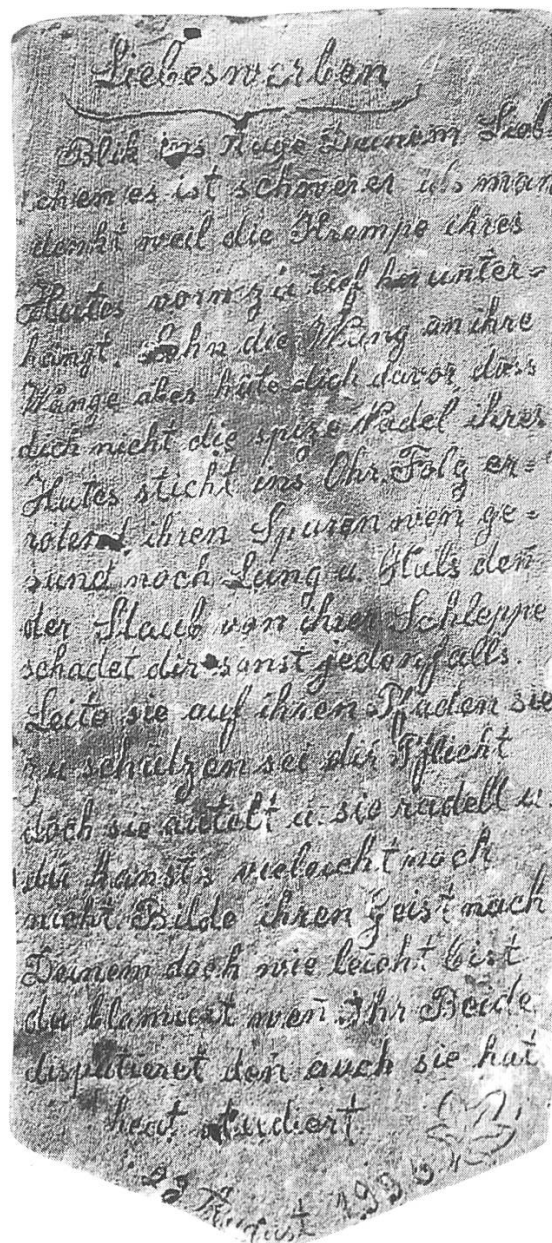 Liebeswerben
Blik ins Auge Deinem Lieb-
chen es ist schwerer als man
denkt weil die Krempe ihres
Hutes vorn zu tief hinunter=
hängt. Lehn die Wang an ihre
Wange aber hüte dich davor dass
dich nicht die spize Nadel ihres
Hutes sticht ins Ohr. Folg er=
rötend ihren Spuren wen ge=
sund noch Lung u. Hals den
der Staub von ihrer Schleppe
schadet dir sonst jedenfalls.
Leite sie auf ihren Pfaden sie
zu schützen sei dir Pflicht
doch sie autelt u. sie radelt u
du kansts vieleicht noch
nicht. Bilde ihren Geist nach
Deinem doch wie leicht bist
du blamiert wen Ihr Beide
disputieret den auch sie hat
heut studiert
29 August